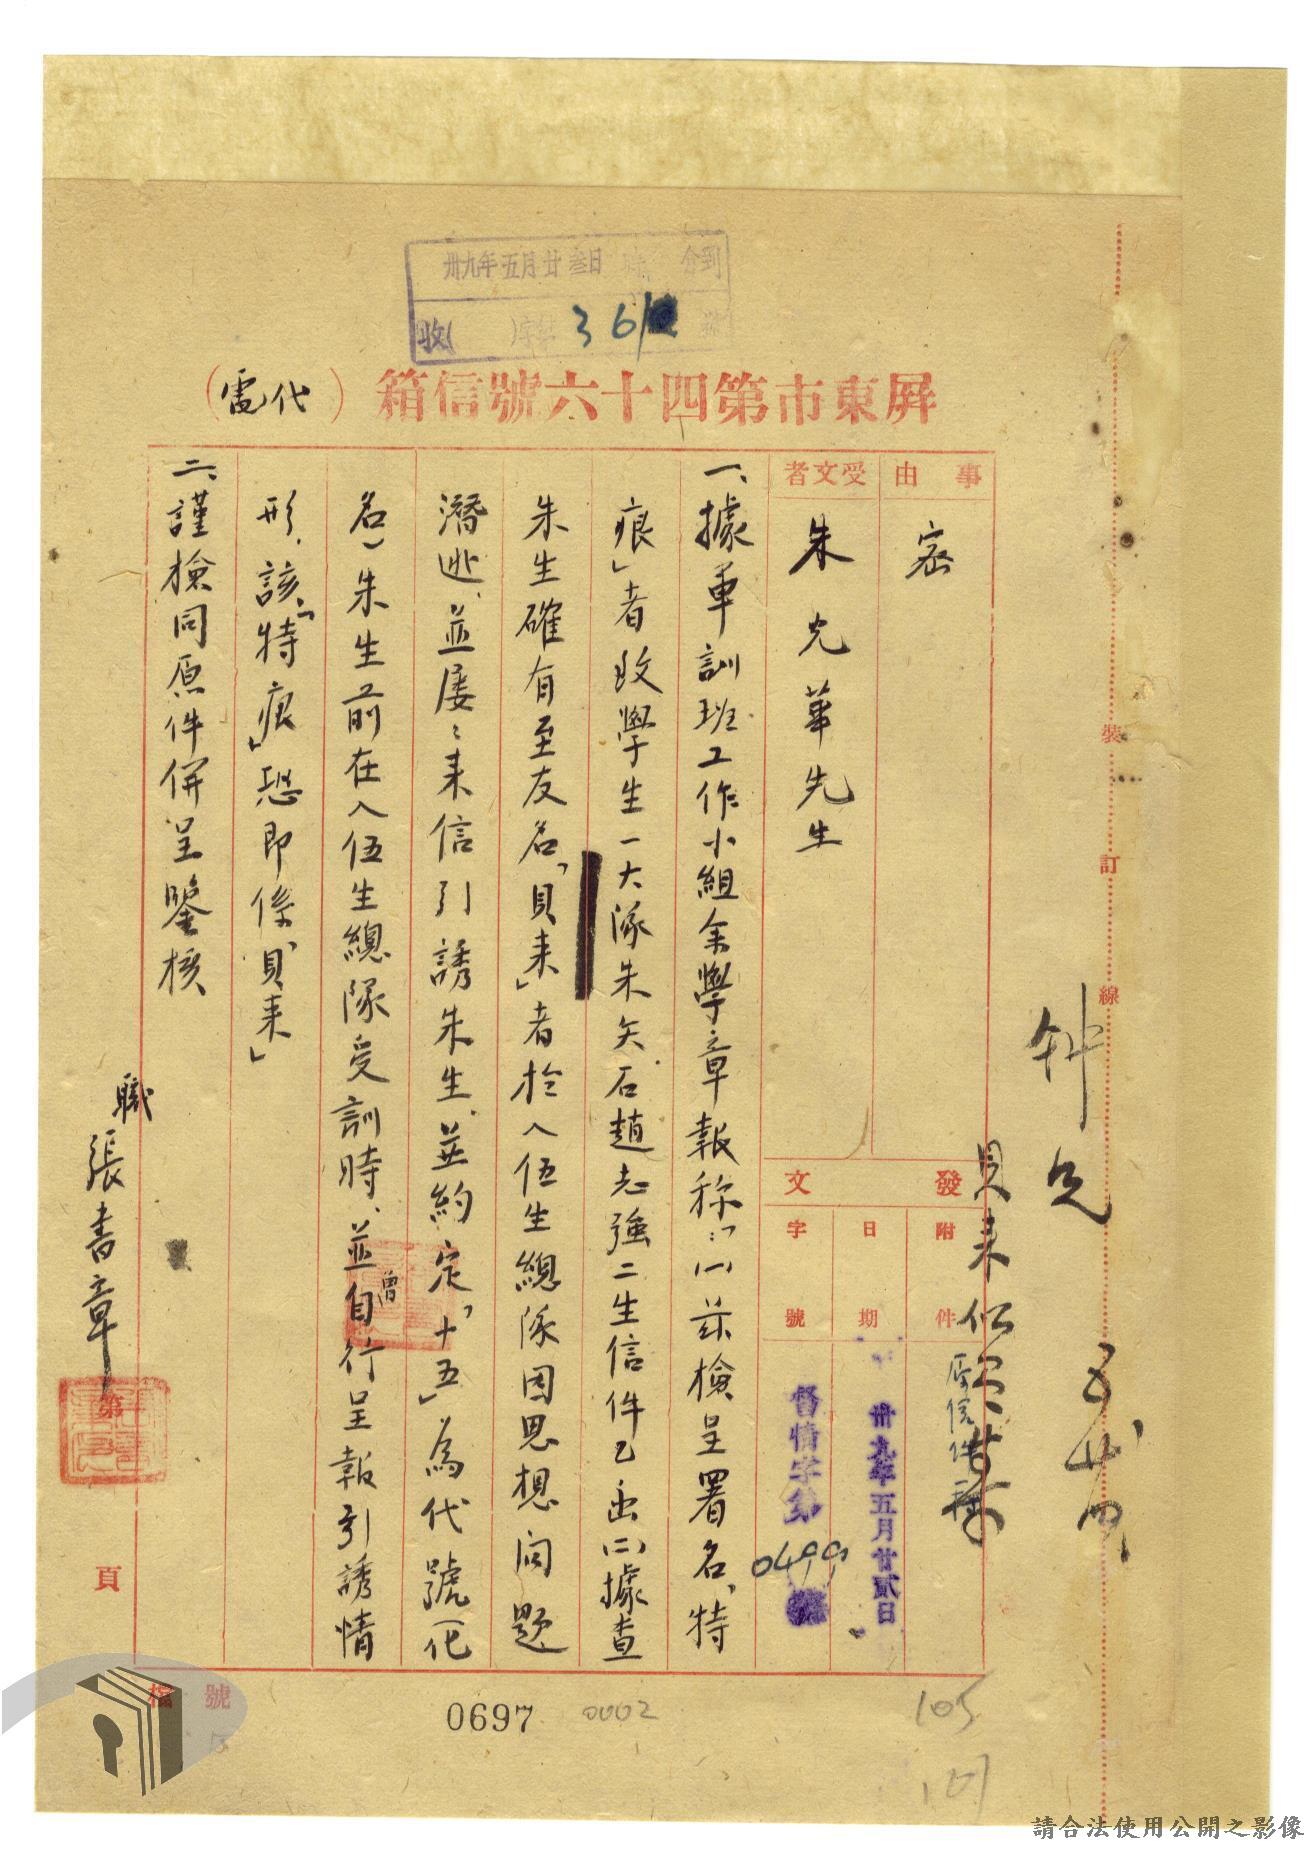 卅九年五月廿叁日 時 分到
收( )字第 361 號
屏東市第四十六號信箱(代電)
事由
密
受文者
朱光華先生
發文
附件
原信件
日期
卅九年五月廿貳日
字號
督情字第0499號
一、據軍訓班工作小組余學章報称:「(一)茲檢呈署名「特
痕」者致學生一大隊朱矢石趙志強二生信件乙函(二)據查
朱生確有至友名「貝耒」者於入伍生總隊因思想问題
潛逃、並屡々来信引誘朱生、並約定「十五」為代號(化
名)朱生前在入伍生總隊受訓時、並曾自行呈報引誘情
形、該「特痕」恐即係「貝耒」
二、謹檢同原件併呈鑒核
職張書章
第
頁
裝
訂
線
貝耒似
檔號
0697
0002
105
請合法使用公開之影像